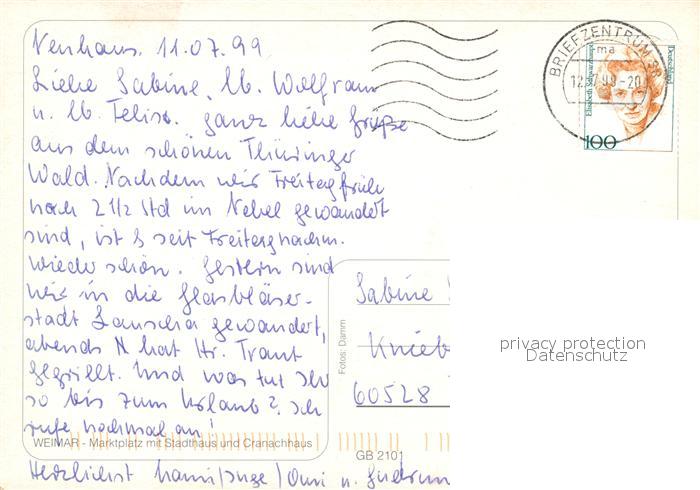 Neuhaus, 11.07.99
Liebe Sabine, lb. Wolfram
u. lb. Felix. ganz liebe Grüße
aus dem schönen Thüringer
Wald. Nachdem wir Freitagfrüh
noch 2 1/2 Std im Nebel gewandert
sind, ist s seit Freitagnachm.
wieder schön. Gestern sind
wir in die Glasbläser-
stadt Lauscha gewandert,
abends hat Hr. Traut
gegrillt. Und was tut Ihr
so bis zum Urlaub? Ich
rufe nochmal an!
Herzlichst u. Gudrun
WEIMAR - Marktplatz mit Stadthaus und Cranachhaus
GB 2101
Fotos: Damm
BRIEFZENTRUM
ma
-20
Deutschland
Elisabeth Schwarzhaupt
100
Sabine
Knieb
60528
privacy protection
Datenschutz